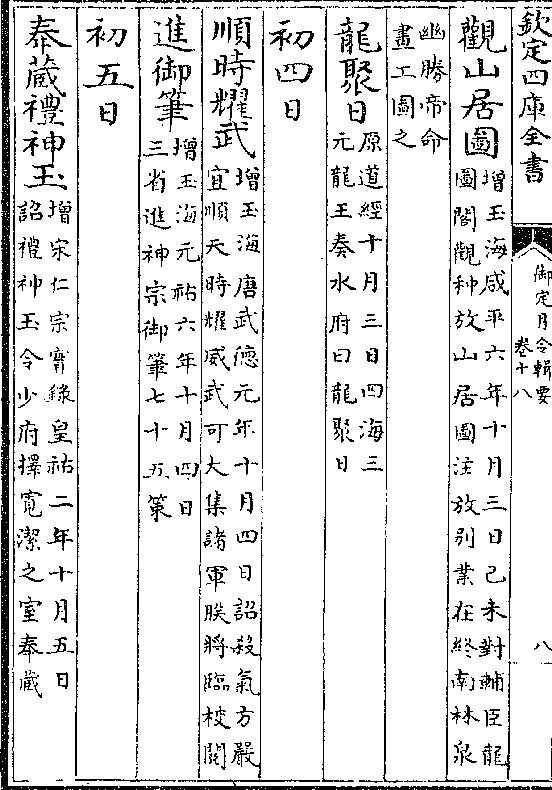 欽定四庫全書
御定月令輯要
卷十八
八
觀山居圖
增玉海咸平六年十月三日己未對輔臣龍
圖閣觀种放山居圖注放别業在終南林泉
幽勝帝命
畫工圖之
龍聚日
原道經十月三日四海三
元龍王奏水府曰龍聚日
初四日
順時耀武
增玉海唐武德元年十月四日詔殺氣方嚴
宜順天時耀威武可大集諸軍朕將臨校閱
進御筆
增玉海元祐六年十月四日
三省進神宗御筆七十五策
初五日
奉藏禮神玉
增宋仁宗實錄皇祐二年十月五日
詔禮神玉令少府擇寬潔之室奉藏